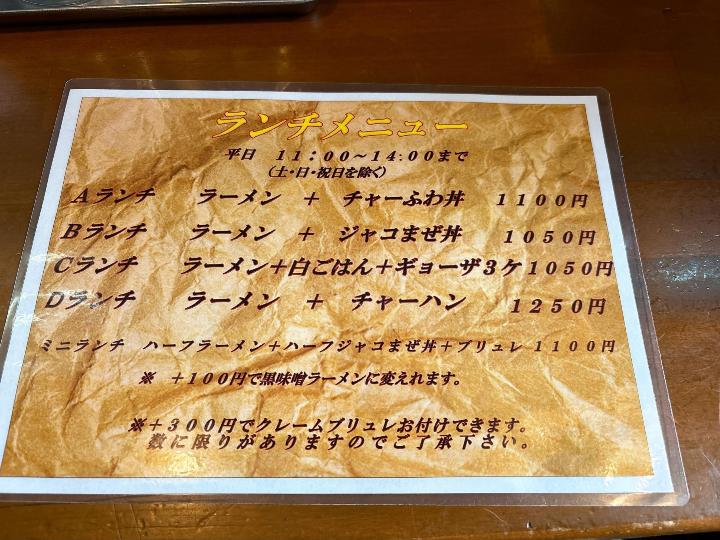 ランチメニュー
平日 11:00〜14:00まで
(土・日・祝日を除く)
Aランチ ラーメン + チャーふわ丼 1100円
Bランチ ラーメン + ジャコまぜ丼 1050円
Cランチ ラーメン+白ごはん+ギョーザ3ケ 1050円
Dランチ ラーメン + チャーハン 1250円
ミニランチ ハーフラーメン+ハーフジャコまぜ丼+ブリュレ 1100円
※ +100円で黒味噌ラーメンに変えれます。
※+300円でクレームブリュレお付けできます。
数に限りがありますのでご了承下さい。